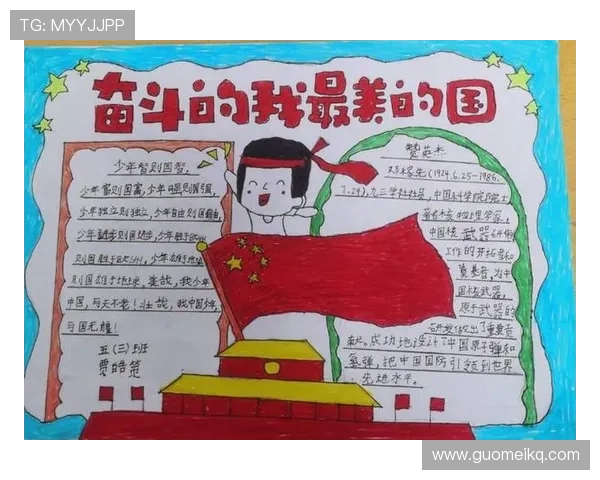 TG: MYYJJPP
奋斗的我最美的国
少年智则国智,
少年富则国富,少年强则国强,
少年独立则独立,少年自由则国自由,
少年进步则国进步,少年胜于欧洲
则国胜于欧洲,少年雄于地球
则国雄于地球,美哉,我少年
中国,与天不老!壮哉,我中国少年,
与国无疆!
五(三)班
贾皓
赞英杰
邓稼先(1924.6.25-1986.
7.29),九三学社社员,中国科学院院士
著名核物理学家,
中国核武器研制
工作的开拓者和
奠基者,为中
国核武器,
原子武器的
研发做出了重要贡
献。成功地设计了中国原子弹和
氢弹,把中国国防引领到世界
先进水平。
www.guomeikq.com